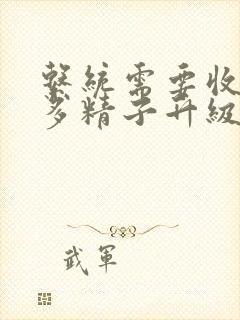 繫統需要收
多精子升級
武軍